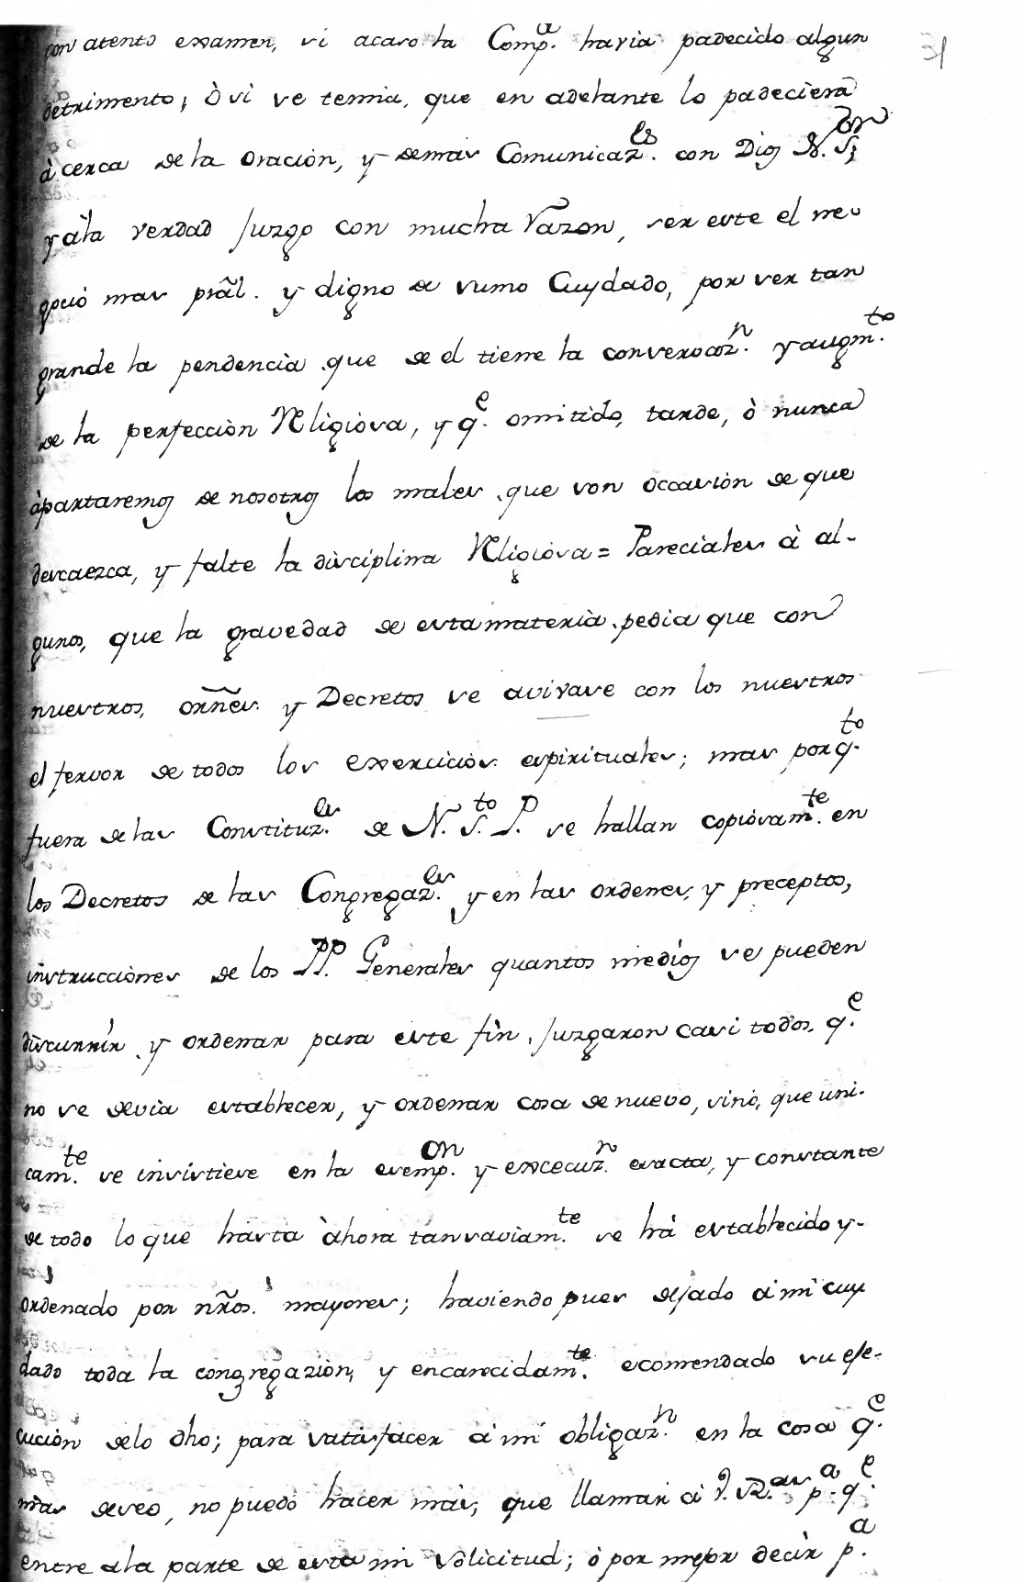 31
con atento examen, si acaso la Comp.ª havia padecido algun
detrimento; ò si se temia, que en adelante lo padeciera
à cerca de la Oraciòn, y demas Comunicaz.es con Dios N. S.or;
y à la verdad Juzgo con mucha razon, ser este el ne-
gociò mas prãl. y digno de sumo Cuydado, por ser tan
grande la pendencia que de el tiene la conversaz.n y augm.to
de la perfecciòn Religiòsa, y q.e omitido, tarde, ò nunca
àpartaremos de nosotros los males, que son occasiòn de que
descaezca, y falte la disciplina Religiòsa = Pareciales à al-
gunos, que la gravedad de esta materia pedia que con
nuestros, orñes. y Decretos se avivase con los nuestros
el fervor de todos los exerciciòs espirituales; mas por q.to
fuera de las Constituz.es de N. S.to P. se hallan copiòsam.te en
los Decretos de las Congregaz.es y en las ordenes, y preceptos,
instrucciònes de los PP. Generales quantos mediòs se pueden
discurrir, y ordenar para este fin, Juzgaron casi todos, q.e
no se devia establecer, y ordenar cosa de nuevo, sinò, que uni-
cam.te se insistiese en la exemp.on y execuz.n exacta, y constante
de todo lo que hasta àhora tan saviam.te se hà establecido y-
ordenado por nr̃os. mayores; haviendo pues dejado à mi cuy
dado toda la congregaziòn, y encarecidam.te ecomendado su eje-
cuciòn delo dho; para satisfacer à mi obligaz.n en la cosa q.e
màs deveo, no puedo hacer màs, que llamar à V. RR.as p.a q.e
entre à la parte de esta mi solicitud; ò por mejor decir p.a